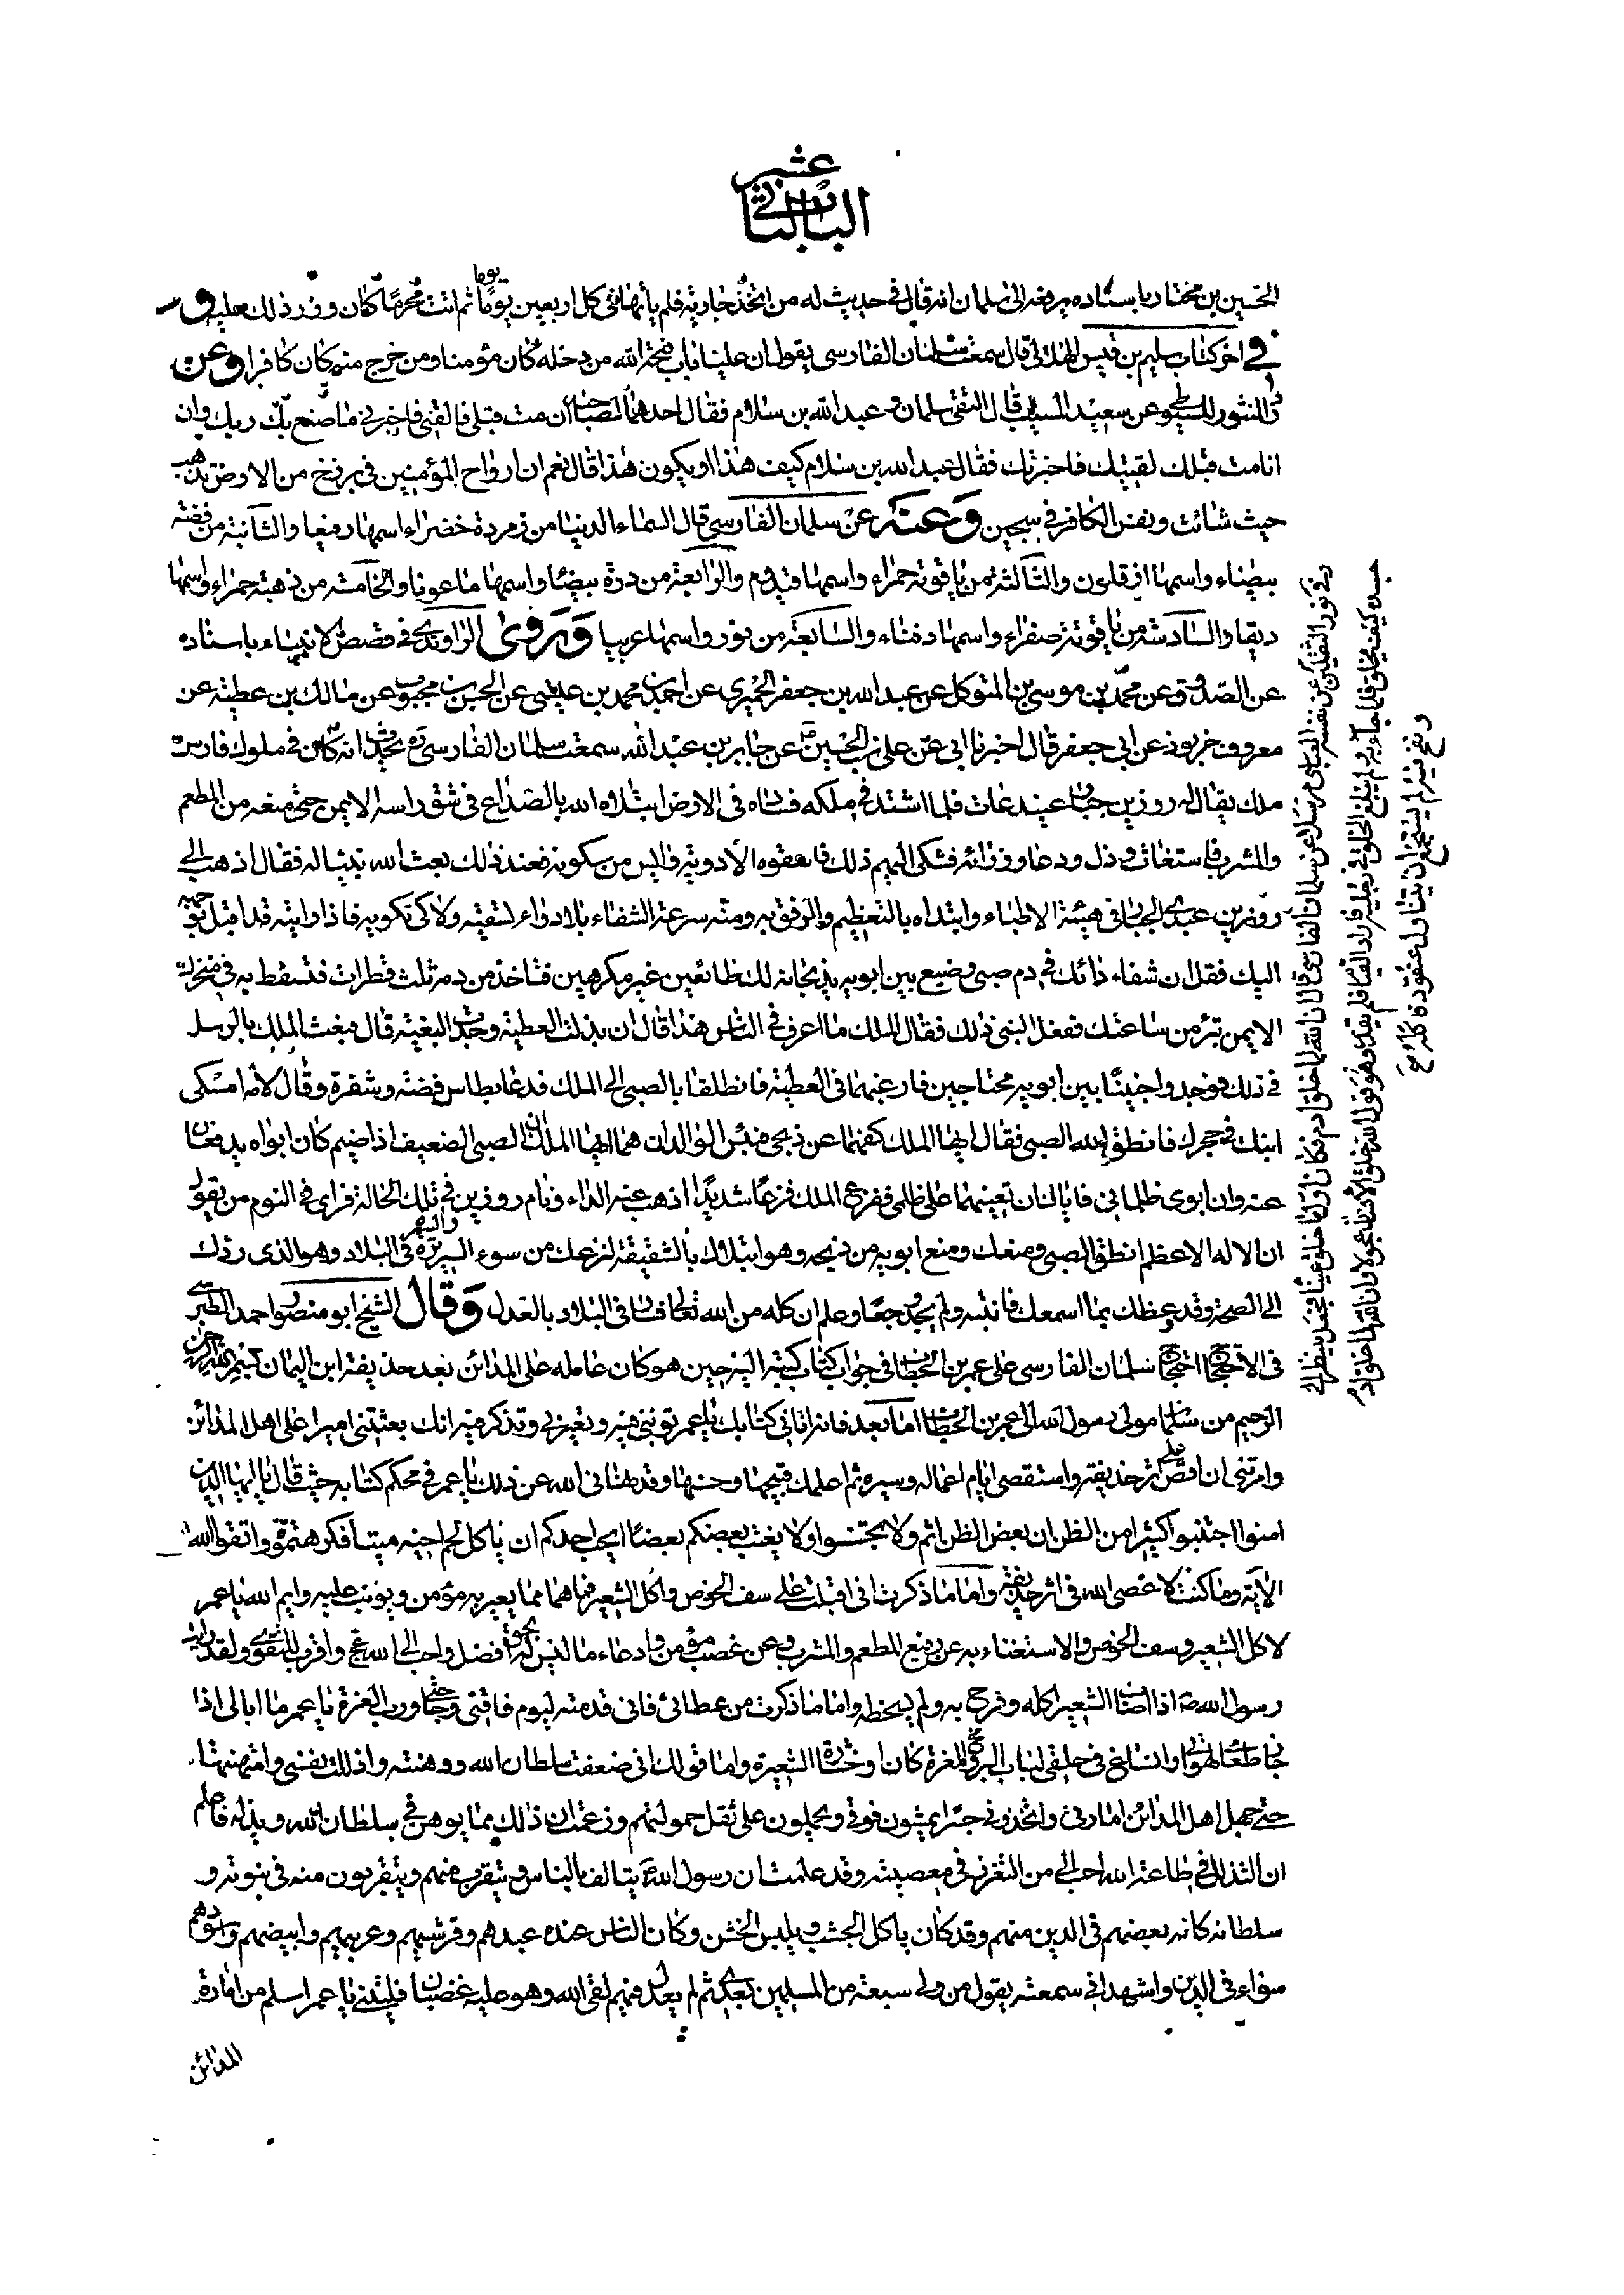 الباب الثانى عشر
الحسين بن مختار باسناده يرفعه الى سلمان انه قال فى حديث له من اتخذ جارية فلم ياتها فى كل اربعين يوما ثم اتت محرما كان وزر ذلك عليه و
فى اخر كتاب سليم بن قيس الهلالى قال سمعت سلمان الفارسى يقول ان عليا باب فتحه الله من دخله كان مؤمنا ومن خرج منه كان كافرا وعن
در المنثور للسيوطى عن سعيد المسيب قال التقى سلمان وعبد الله بن سلام فقال احدهما لصاحبه ان مت قبلى فالقنى فاخبرنى ما صنع بك ربك وان
انا مت قبلك لقيتك فاخبرتك فقال عبد الله بن سلام كيف هذا او يكون هذا قال نعم ان ارواح المؤمنين فى برزخ من الارض تذهب
حيث شائت ونفس الكافر فى سجين وعنه عن سلمان الفارسى قال السماء الدنيا من زمردة خضراء اسمها رفيعا والثانية من فضة
بيضاء واسمها ارقلون والثالثة من ياقوتة حمراء واسمها قيدوم والرابعة من درة بيضا واسمها ماعونا والخامسة من ذهبة حمراء واسمها
ديقا والسادسة من ياقوتة صفراء واسمها دفناء والسابعة من نور واسمها عربيا وروى الراوندى فى قصص الانبياء باسناده
عن الصدوق عن محمد بن موسى بن المتوكل عن عبد الله بن جعفر الحميرى عن احمد بن محمد بن عيسى عن الحسن بن محبوب عن مالك بن عطية عن
معروف خربوذ عن ابى جعفر قال اخبرنا ابى عن على بن الحسين عن جابر بن عبد الله سمعت سلمان الفارسى ره يحدث انه كان فى ملوك فارس
ملك يقال له روزين جبار عنيد عات فلما اشتد فى ملكه فساده فى الارض ابتلاه الله بالصداع فى شق راسه الايمن حتى منعه من المطعم
والمشرب فاستغاث وذل ودعا وزرائه فشكى اليهم ذلك فاسقوه الادوية وايس من سكونه فعند ذلك بعث الله نبيا له فقال اذهب الى
روزين عبدى الجبار فى هيئة الاطباء وابتداه بالتعظيم والرفق به ومنه سرعة الشفاء بلا دواء تسقيه ولا كى تكويه فاذا رايته قد اقبل بوجهه
اليك فقل ان شفاء دائك فى دم صبى رضيع بين ابويه يذبحانه لك طائعين غير مكرهين فتاخذ من دمه ثلث قطرات فتسقط به فى منخرك
الايمن تبرء من ساعتك ففعل النبى ذلك فقال الملك ما اعرف فى الناس هذا قال ان بذلت العطية وجدت البغية قال فبعث الملك بالرسل
فى ذلك فوجدوا جنينا بين ابويه محتاجين فارغبهما فى العطية فانطلقا بالصبى الى الملك فدعا بطاس فضة وشفرة وقال لامه امسكى
ابنك فى حجرك فانطق الله الصبى فقال ايها الملك كفهما عن ذبحى فبئس الوالدان هما ايها الملك ان الصبى الضعيف اذا ضيم كان ابواه يدفعان
عنه وان ابوى ظلمانى فاياك ان تعينهما على ظلمى ففزع الملك فزعا شديدا اذهب عنه الداء ونام روزين فى تلك الحالة فراى فى النوم من يقول
ان الاله الاعظم انطق الصبى ومنعك ومنع ابويه من ذبحه وهو ابتلاك بالشقيقة لنزعك من سوء السيرة فى البلاد وهو الذى ردك
الى الصحة وقد وعظك بما اسمعك فانتبه ولم يجد وجعا وعلم ان كله من الله تعالى فسار فى البلاد بالعدل وقال الشيخ ابو منصور احمد الطبرسى
فى الاحتجاج احتجاج سلمان الفارسى على عمر بن الخطاب فى جواب كتاب كتبه اليه حين هو كان عامله على المدائن بعد حذيفة ابن اليمان بسم الله الرحمن
الرحيم من سلمان مولى رسول الله الى عمر بن الخطاب اما بعد فانه اتانى كتابك يا عمر تؤنبنى فيه وتعيرنى وتذكر فيه انك بعثتنى اميرا على اهل المدائن
وامرتنى ان اقص اثر حذيفة واستقصى ايام اعماله وسيره ثم اعلمك قبيحها وحسنها وقد نهانى الله عن ذلك يا عمر فى محكم كتابه حيث قال يا ايها الذين
امنوا اجتنبوا كثيرا من الظن ان بعض الظن اثم ولا تجسسوا ولا يغتب بعضكم بعضا ايحب احدكم ان ياكل لحم اخيه ميتا فكرهتموه واتقوا الله
الاية وما كنت لاعصى الله فى اثر حذيفة واما ما ذكرت انى اقبلت على سف الخوص واكل الشعير فما هما مما يعير به مؤمن ويونب عليه وايم الله يا عمر
لاكل الشعير وسف الخوص والاستغناء به عن رفيع المطعم والمشرب وعن غصب مؤمن وادعاء ما ليس له بحق افضل واحب الى الله عج واقرب للتقوى ولقد رايت
رسول الله ص اذا اصاب الشعير اكله وفرح به ولم يسخطه واما ما ذكرت من عطائى فانى قدمته ليوم فاقتى وحاجتى ورب العزة يا عمر ما ابالى اذا
جاز طعامى لهواتى وانساغ فى حلقى لباب البر ومخ المغرة كان او خشارة الشعيرة واما قولك انى ضعفت سلطان الله ووهنته واذللت نفسى وامتهنتها
حتى جهل اهل المدائن امارتى واتخذونى جسرا يمشون فوقى ويحملون على ثقل حمولتهم وزعمت ان ذلك مما يوهن سلطان الله ويذله فاعلم
ان التذلل فى طاعة الله احب الى من التعزز فى معصيته وقد علمت ان رسول الله ص يتالف الناس ويتقرب منهم ويتقربون منه فى نبوته و
سلطانه كانه بعضهم فى الدين منهم وقد كان ياكل الجشب ويلبس الخشن وكان الناس عنده عبدهم وقرشيهم وعربيهم وابيضهم واسودهم
سواء فى الدين واشهد انى سمعته يقول من ولى سبعة من المسلمين بعدى ثم لم يعدل فيهم لقى الله وهو عليه غضبان فليتنى يا عمر اسلم من امارة
المدائن
وفى نور الثقلين عن تفسير العياشى مرسلا عن سلمان الفارسى قال ان الله لما خلق ادم فكان اول ما خلق عيناه فجعل ينظر الى
جسده كيف يخلق فلما ولم يبلغ الخلق فى رجليه فاراد القيام فلم يقدر وهو قول الله خلق الانسان عجولا وان الله لما خلق ادم
ونفخ فيه لم يستجمع ان يتناول عنقودا فاكله